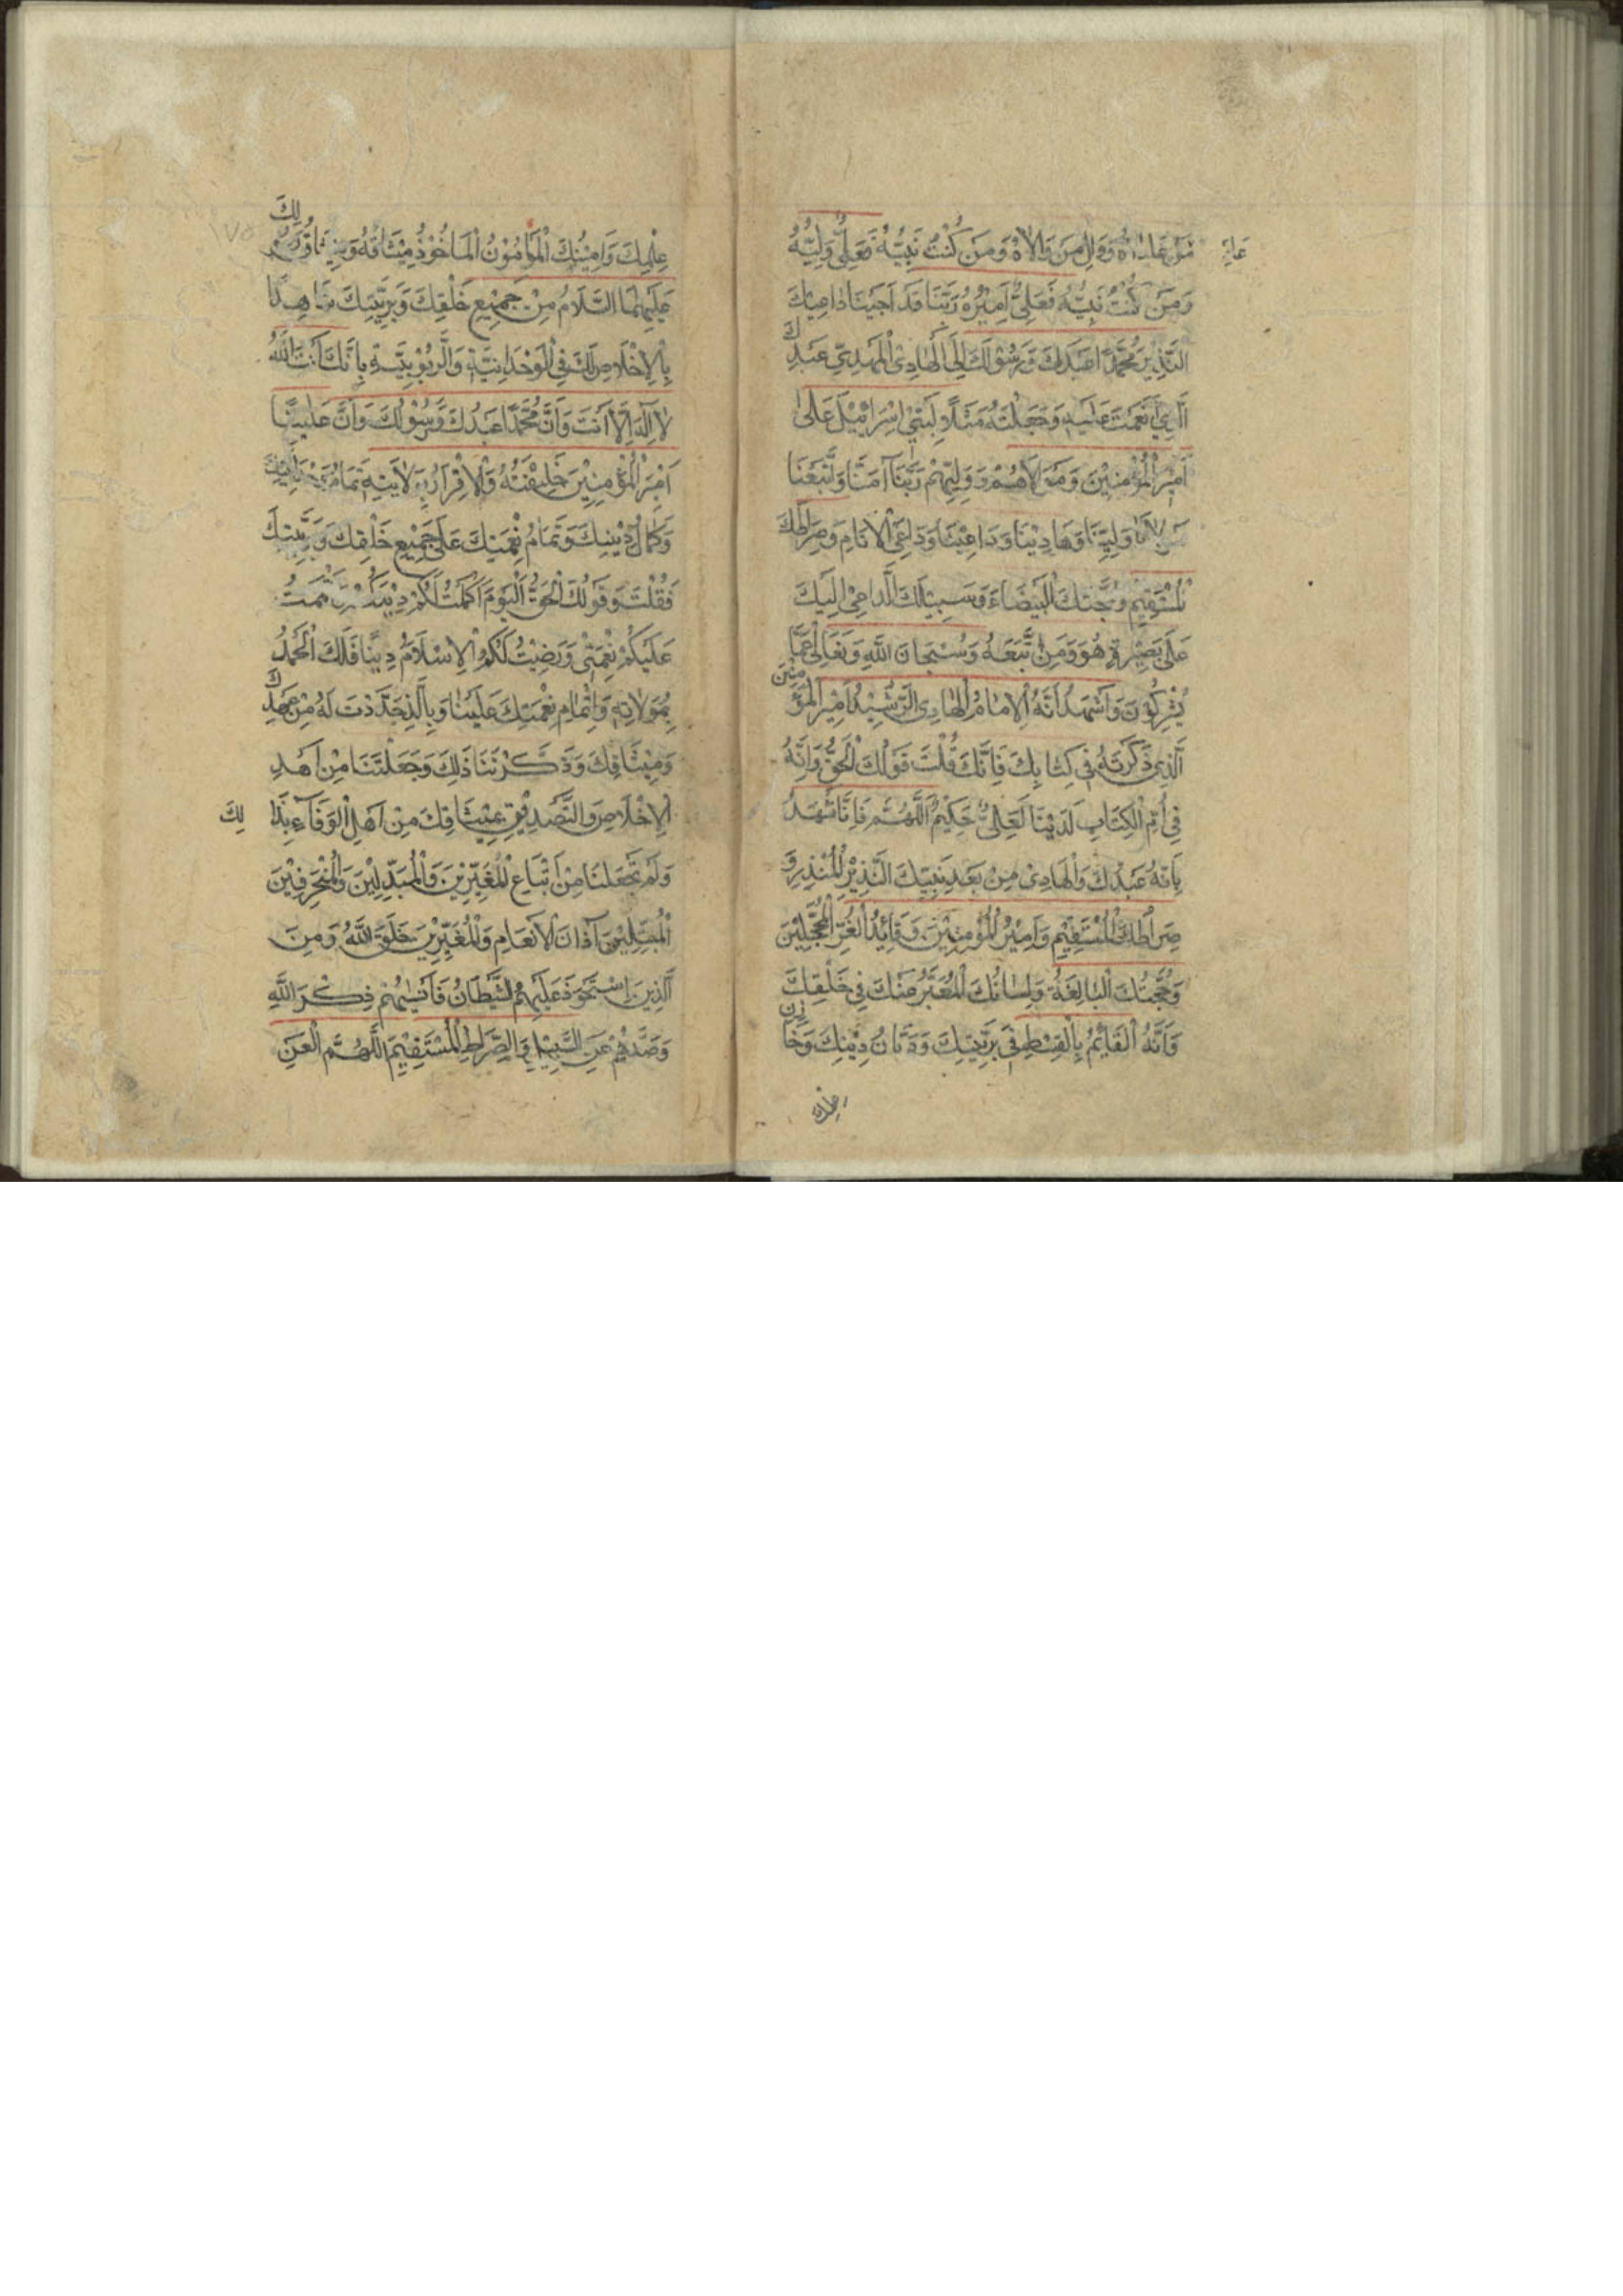 مَنْ عَادَاهُ وَوَالِ مَنْ وَالَاهُ وَمَنْ كُنْتُ نَبِيُّهُ فَعَلِيٌّ وَلِيُّهُ
وَمَنْ كُنْتُ نَبِيُّهُ فَعَلِيٌّ اَمِيْرُهُ رَبَّنَا قَدْ اَجَبْنَا دَاعِيَكَ
النَّذِيْرَ مُحَمَّدًا عَبْدَكَ وَرَسُوْلَكَ اِلَى الْهَادِى الْمَهْدِيِّ عَبْدِكَ
الَّذِيْ اَنْعَمْتَ عَلَيْهِ وَجَعَلْتَهُ مَثَلًا لِبَنِيْ اِسْرَائِيْلَ عَلٰى
اَمِيْرِ الْمُؤْمِنِيْنَ وَمَوْلَاهُمْ وَوَلِيِّهِمْ رَبَّنَا آمَنَّا وَاتَّبَعْنَا
مَوْلَانَا وَلِيَّنَا وَهَادِيْنَا وَدَاعِيْنَا وَدَاعِيَ الْاَنَامِ وَصِرَاطَكَ
الْمُسْتَقِيْمَ وَحُجَّتَكَ الْبَيْضَاءَ وَسَبِيْلَكَ الدَّاعِيْ اِلَيْكَ
عَلٰى بَصِيْرَةٍ هُوَ وَمَنِ اتَّبَعَهُ وَسُبْحَانَ اللهِ وَتَعَالٰى عَمَّا
يُشْرِكُوْنَ وَاَشْهَدُ اَنَّهُ الْاِمَامُ الْهَادِى الرَّشِيْدُ اَمِيْرُ الْمُؤْمِنِيْنَ
الَّذِى ذَكَرْتَهُ فِى كِتَابِكَ فَاِنَّكَ قُلْتَ قَوْلُكَ الْحَقُّ وَاِنَّهُ
فِى اُمِّ الْكِتَابِ لَدَيْنَا لَعَلِىٌّ حَكِيْمٌ اَللّٰهُمَّ فَاِنَّا نَشْهَدُ
بِاَنَّهُ عَبْدُكَ وَالْهَادِى مِنْ بَعْدِ نَبِيِّكَ النَّذِيْرِ الْمُنْذِرِ وَ
صِرَاطُكَ الْمُسْتَقِيْمُ وَاَمِيْرُ الْمُؤْمِنِيْنَ وَقَائِدُ الْغُرِّ الْمُحَجَّلِيْنَ
وَحُجَّتُكَ الْبَالِغَةُ وَلِسَانُكَ الْمُعَبِّرُ عَنْكَ فِى خَلْقِكَ
وَاَنَّهُ الْقَائِمُ بِالْقِسْطِ فِى بَرِيَّتِكَ وَدَيَّانُ دِيْنِكَ وَخَازِنُ
عِلْمِكَ وَاَمِيْنُكَ الْمَأْمُوْنُ الْمَاْخُوْذُ مِيْثَاقُهُ وَمِيْثَاقُ رَسُوْلِكَ
عَلَيْهِمَا السَّلَامُ مِنْ جَمِيْعِ خَلْقِكَ وَبَرِيَّتِكَ شَاهِدًا
بِالْاِخْلَاصِ لَكَ فِى الْوَحْدَانِيَّةِ وَالرُّبُوْبِيَّةِ بِاَنَّكَ اَنْتَ اللهُ
لَا اِلٰهَ اِلَّا اَنْتَ وَاَنَّ مُحَمَّدًا عَبْدُكَ وَرَسُوْلُكَ وَاَنَّ عَلِيًّا
اَمِيْرَ الْمُؤْمِنِيْنَ خَلِيْفَتُهُ وَالْاِقْرَارُ بِوَلَايَتِهِ تَمَامُ
وَكَمَالُ دِيْنِكَ وَتَمَامُ نِعْمَتِكَ عَلٰى جَمِيْعِ خَلْقِكَ وَبَرِيَّتِكَ
فَقُلْتَ وَقَوْلُكَ الْحَقُّ اَلْيَوْمَ اَكْمَلْتُ لَكُمْ دِيْنَكُمْ وَاَتْمَمْتُ
عَلَيْكُمْ نِعْمَتِىْ وَرَضِيْتُ لَكُمُ الْاِسْلَامَ دِيْنًا فَلَكَ الْحَمْدُ
بِمُوَلَاتِهِ وَاِتْمَامِ نِعْمَتِكَ عَلَيْنَا وَبِالَّذِى جَدَّدْتَ لَهُ مِنْ عَهْدِكَ
وَمِيْثَاقِكَ وَذَكَّرْتَنَا ذٰلِكَ وَجَعَلْتَنَا مِنْ اَهْلِ
الْاِخْلَاصِ وَالتَّصْدِيْقِ بِمِيْثَاقِكَ مِنْ اَهْلِ الْوَفَآءِ بِذٰلِكَ
وَلَمْ تَجْعَلْنَا مِنْ اَتْبَاعِ الْمُغَيِّرِيْنَ وَالْمُبَدِّلِيْنَ وَالْمُنْحَرِفِيْنَ
الْمُبَتِّكِيْنَ آذَانَ الْاَنْعَامِ وَالْمُغَيِّرِيْنَ خَلْقَ اللهِ وَمِنَ
الَّذِيْنَ اسْتَحْوَذَ عَلَيْهِمُ الشَّيْطَانُ فَاَنْسٰيهُمْ ذِكْرَ اللهِ
وَصَدَّهُمْ عَنِ السَّبِيْلِ وَالصِّرَاطِ الْمُسْتَقِيْمِ اَللّٰهُمَّ الْعَنِ